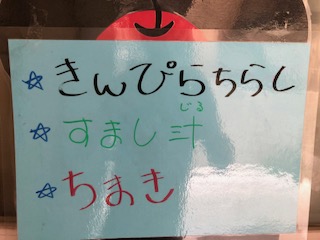 ☆ きんぴらちらし
☆ すまし汁
じる
☆ ちまき